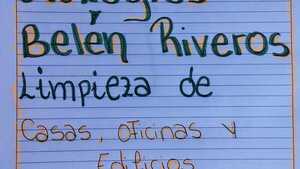 Belén Riveros
Limpieza de
Casas, oficinas y
Edificios